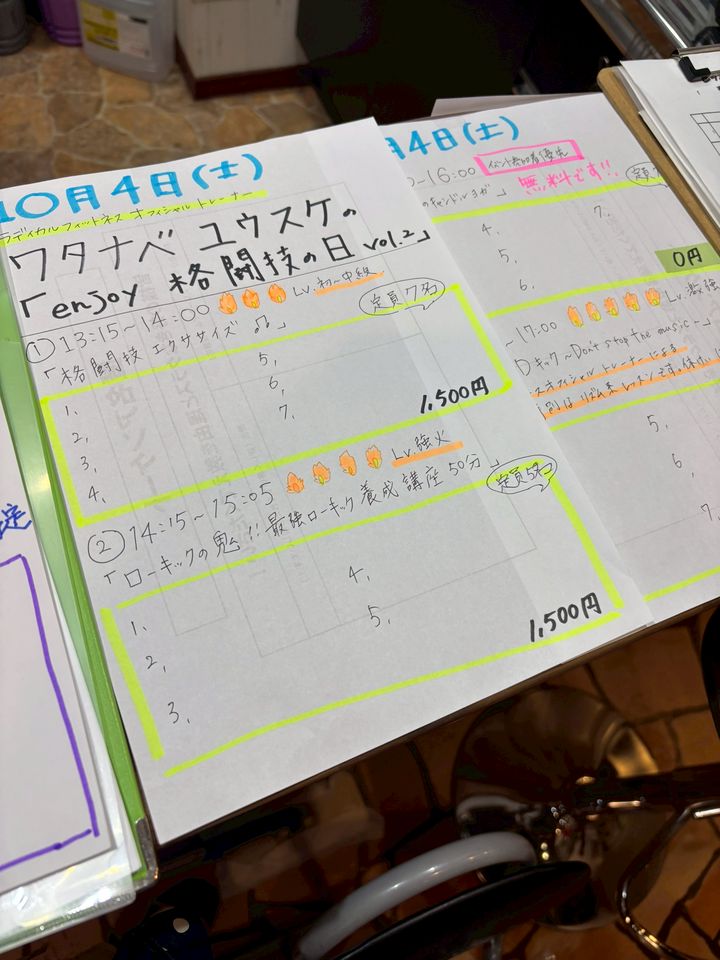 10月4日(土)
ラディカルフィットネス オフィシャルトレーナー
ワタナベ ユウスケの
「enjoy 格闘技の日 vol.2」
① 13:15~14:00 Lv.初~中級
「格闘技 エクササイズ♫」 定員7名
1,
2,
3,
4,
5,
6,
7,
1,500円
② 14:15~15:05 Lv.強火
「ローキックの鬼!!最強ローキック養成講座50分」 定員5名
1,
2,
3,
4,
5,
1,500円
月4日(土)
-16:00 イベント参加者優先
無料です!!
キャンドルヨガ」 定員
4,
5,
6,
7,
0円
~17:00 Lv.激強
Dキック~Don't stop the music~」
スオフィシャルトレーナーによる
はリズム系レッスンです。
5,
6,
7,
定